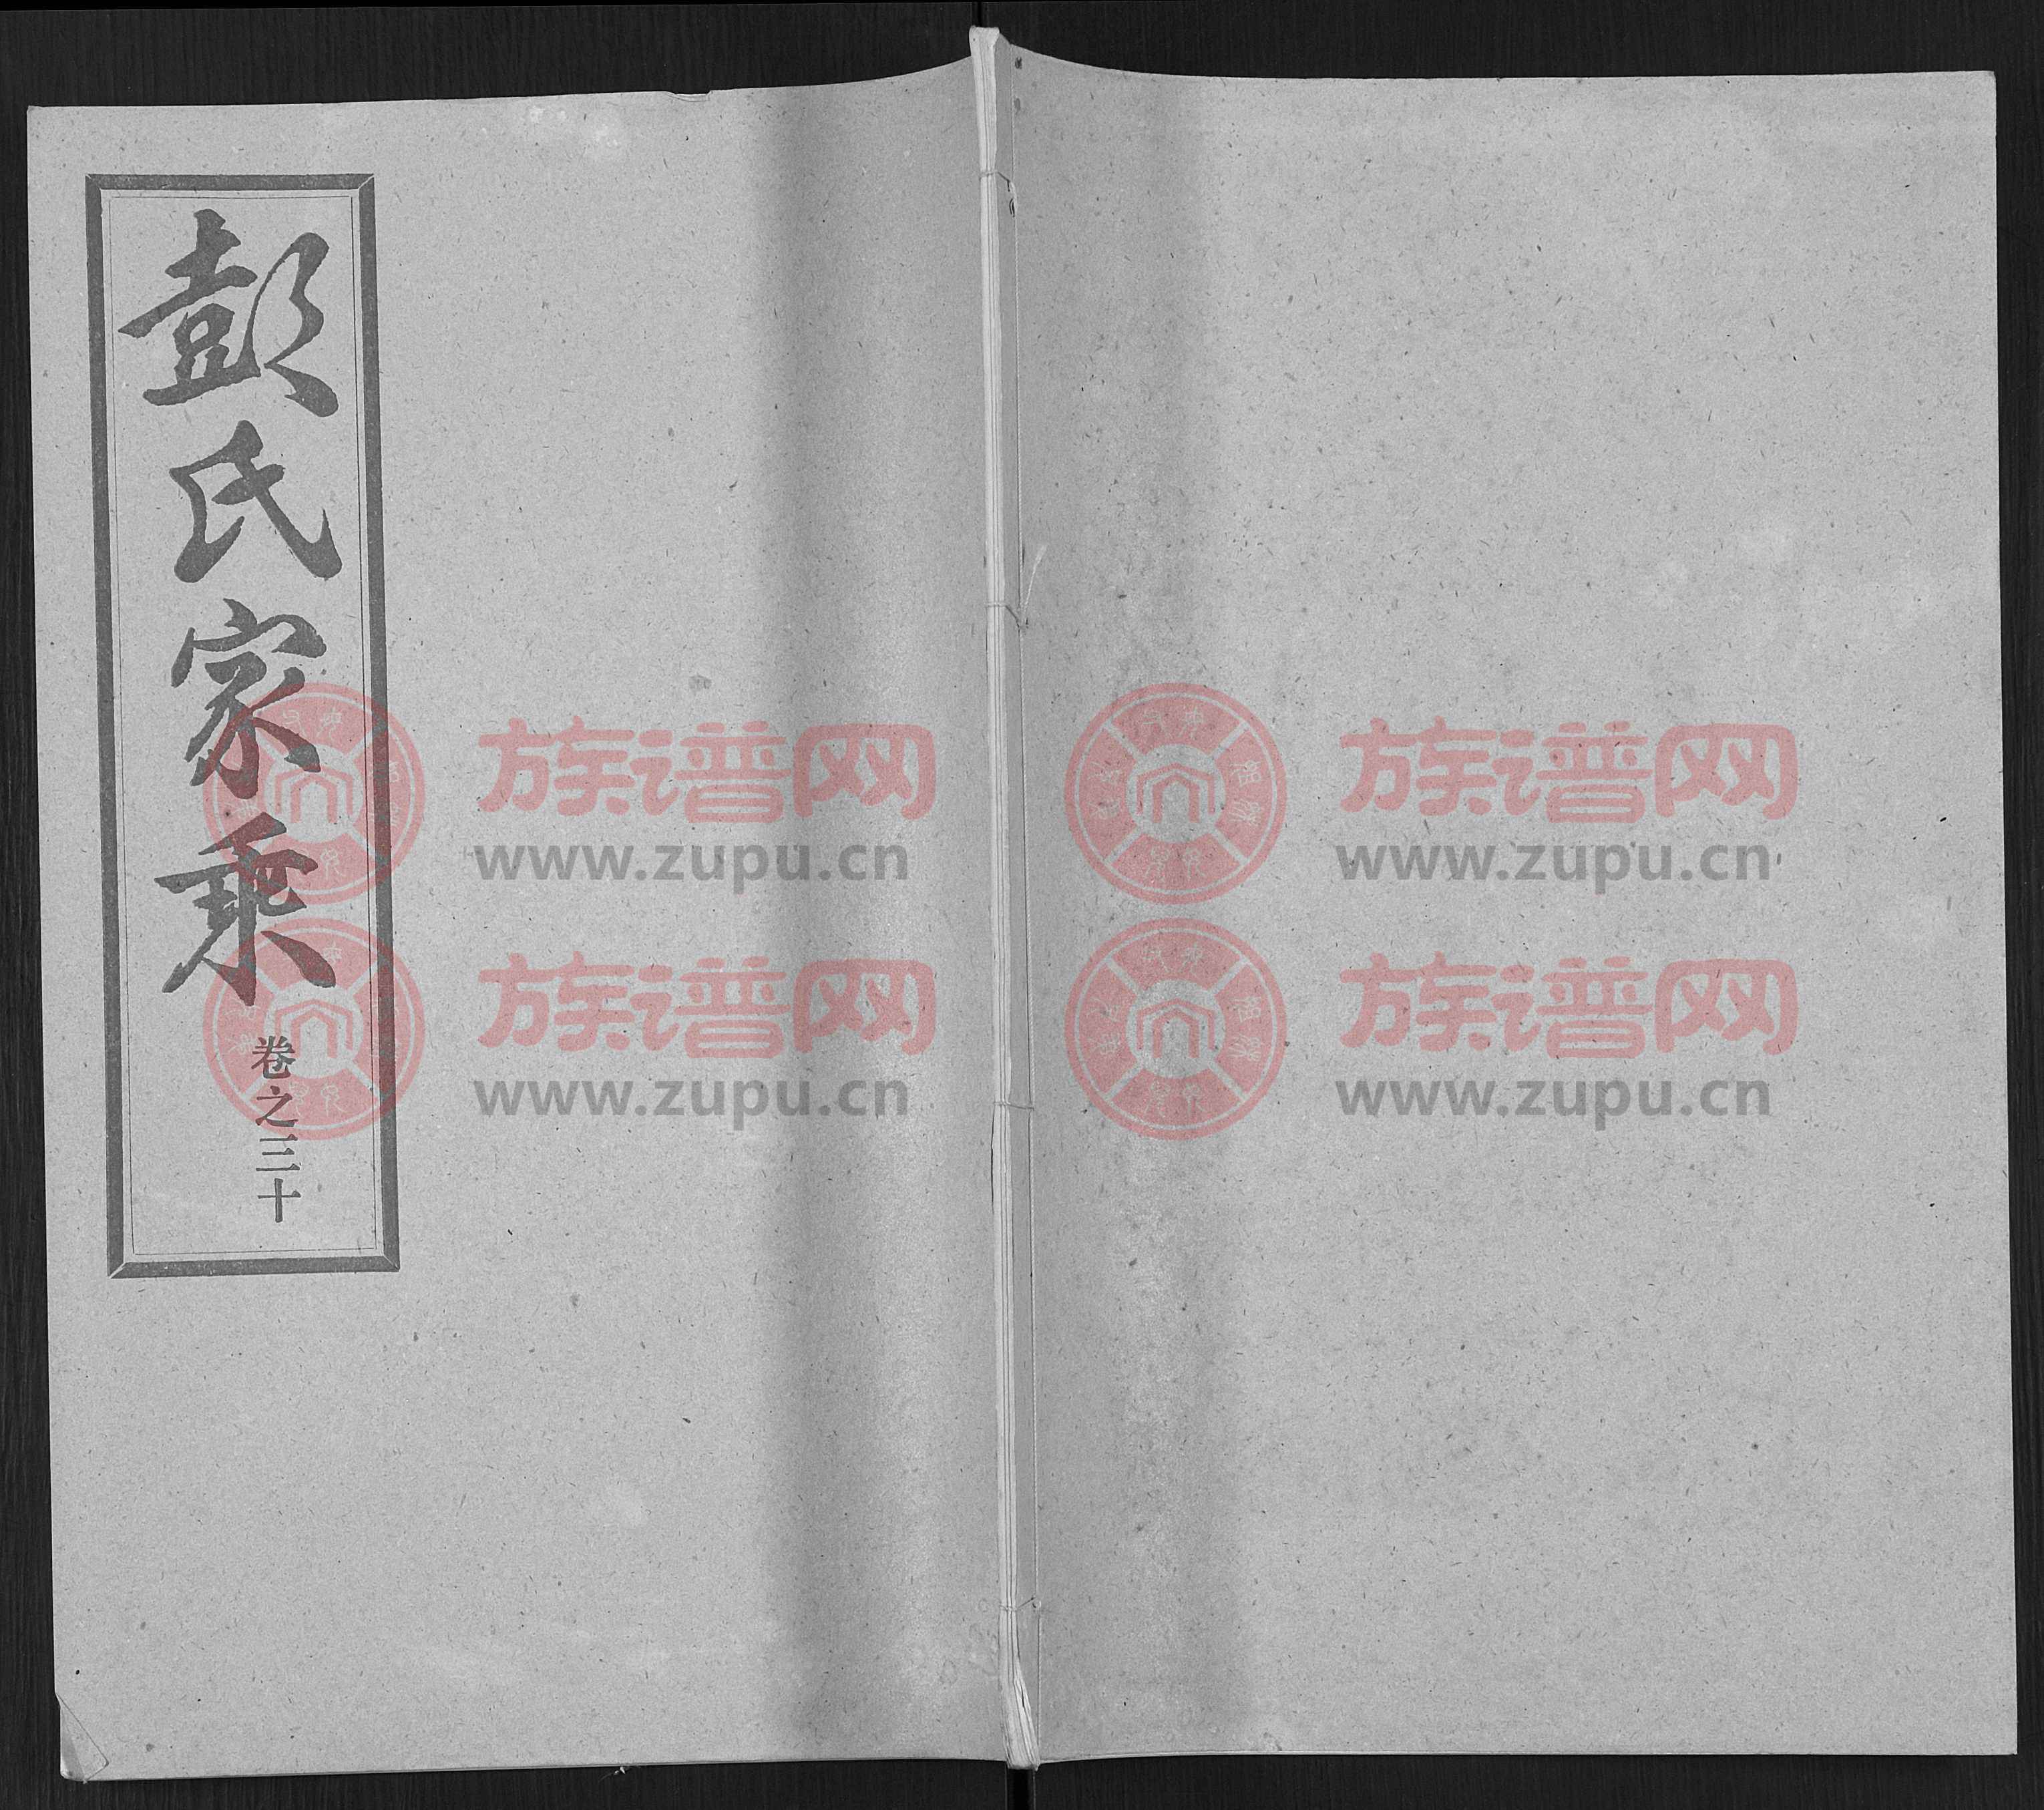 彭氏家乘
卷之三十
族谱网
www.zupu.cn
族谱网
www.zupu.cn
族谱网
www.zupu.cn
族谱网
www.zupu.cn